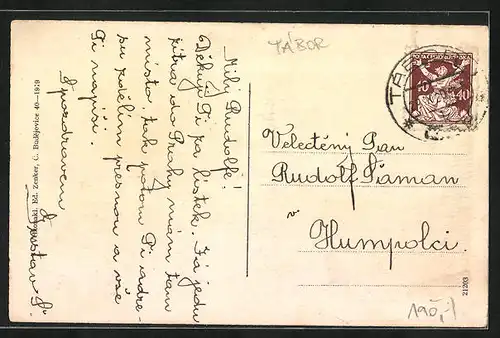 Milý Rudolfe!
Děkuji Ti za lístek. Já jedu
zítra do Prahy mám tam
místo tak potom Ti adre-
su zdělím přesnou a vše
Ti napíši.
S pozdravem
Gustav
Ed. Zenker, Č. Budějovice 49-1919
TÁBOR
TÁBOR
40 40
Velectěný Pan
Rudolf Šaman
v
Humpolci.
21203
190,-/